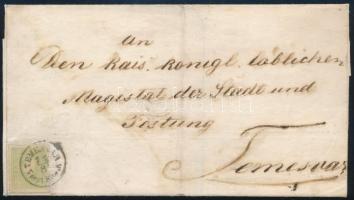 An
Den kais. konigl. löblichen
Magistat der Stadt und
Festung
Temesvar